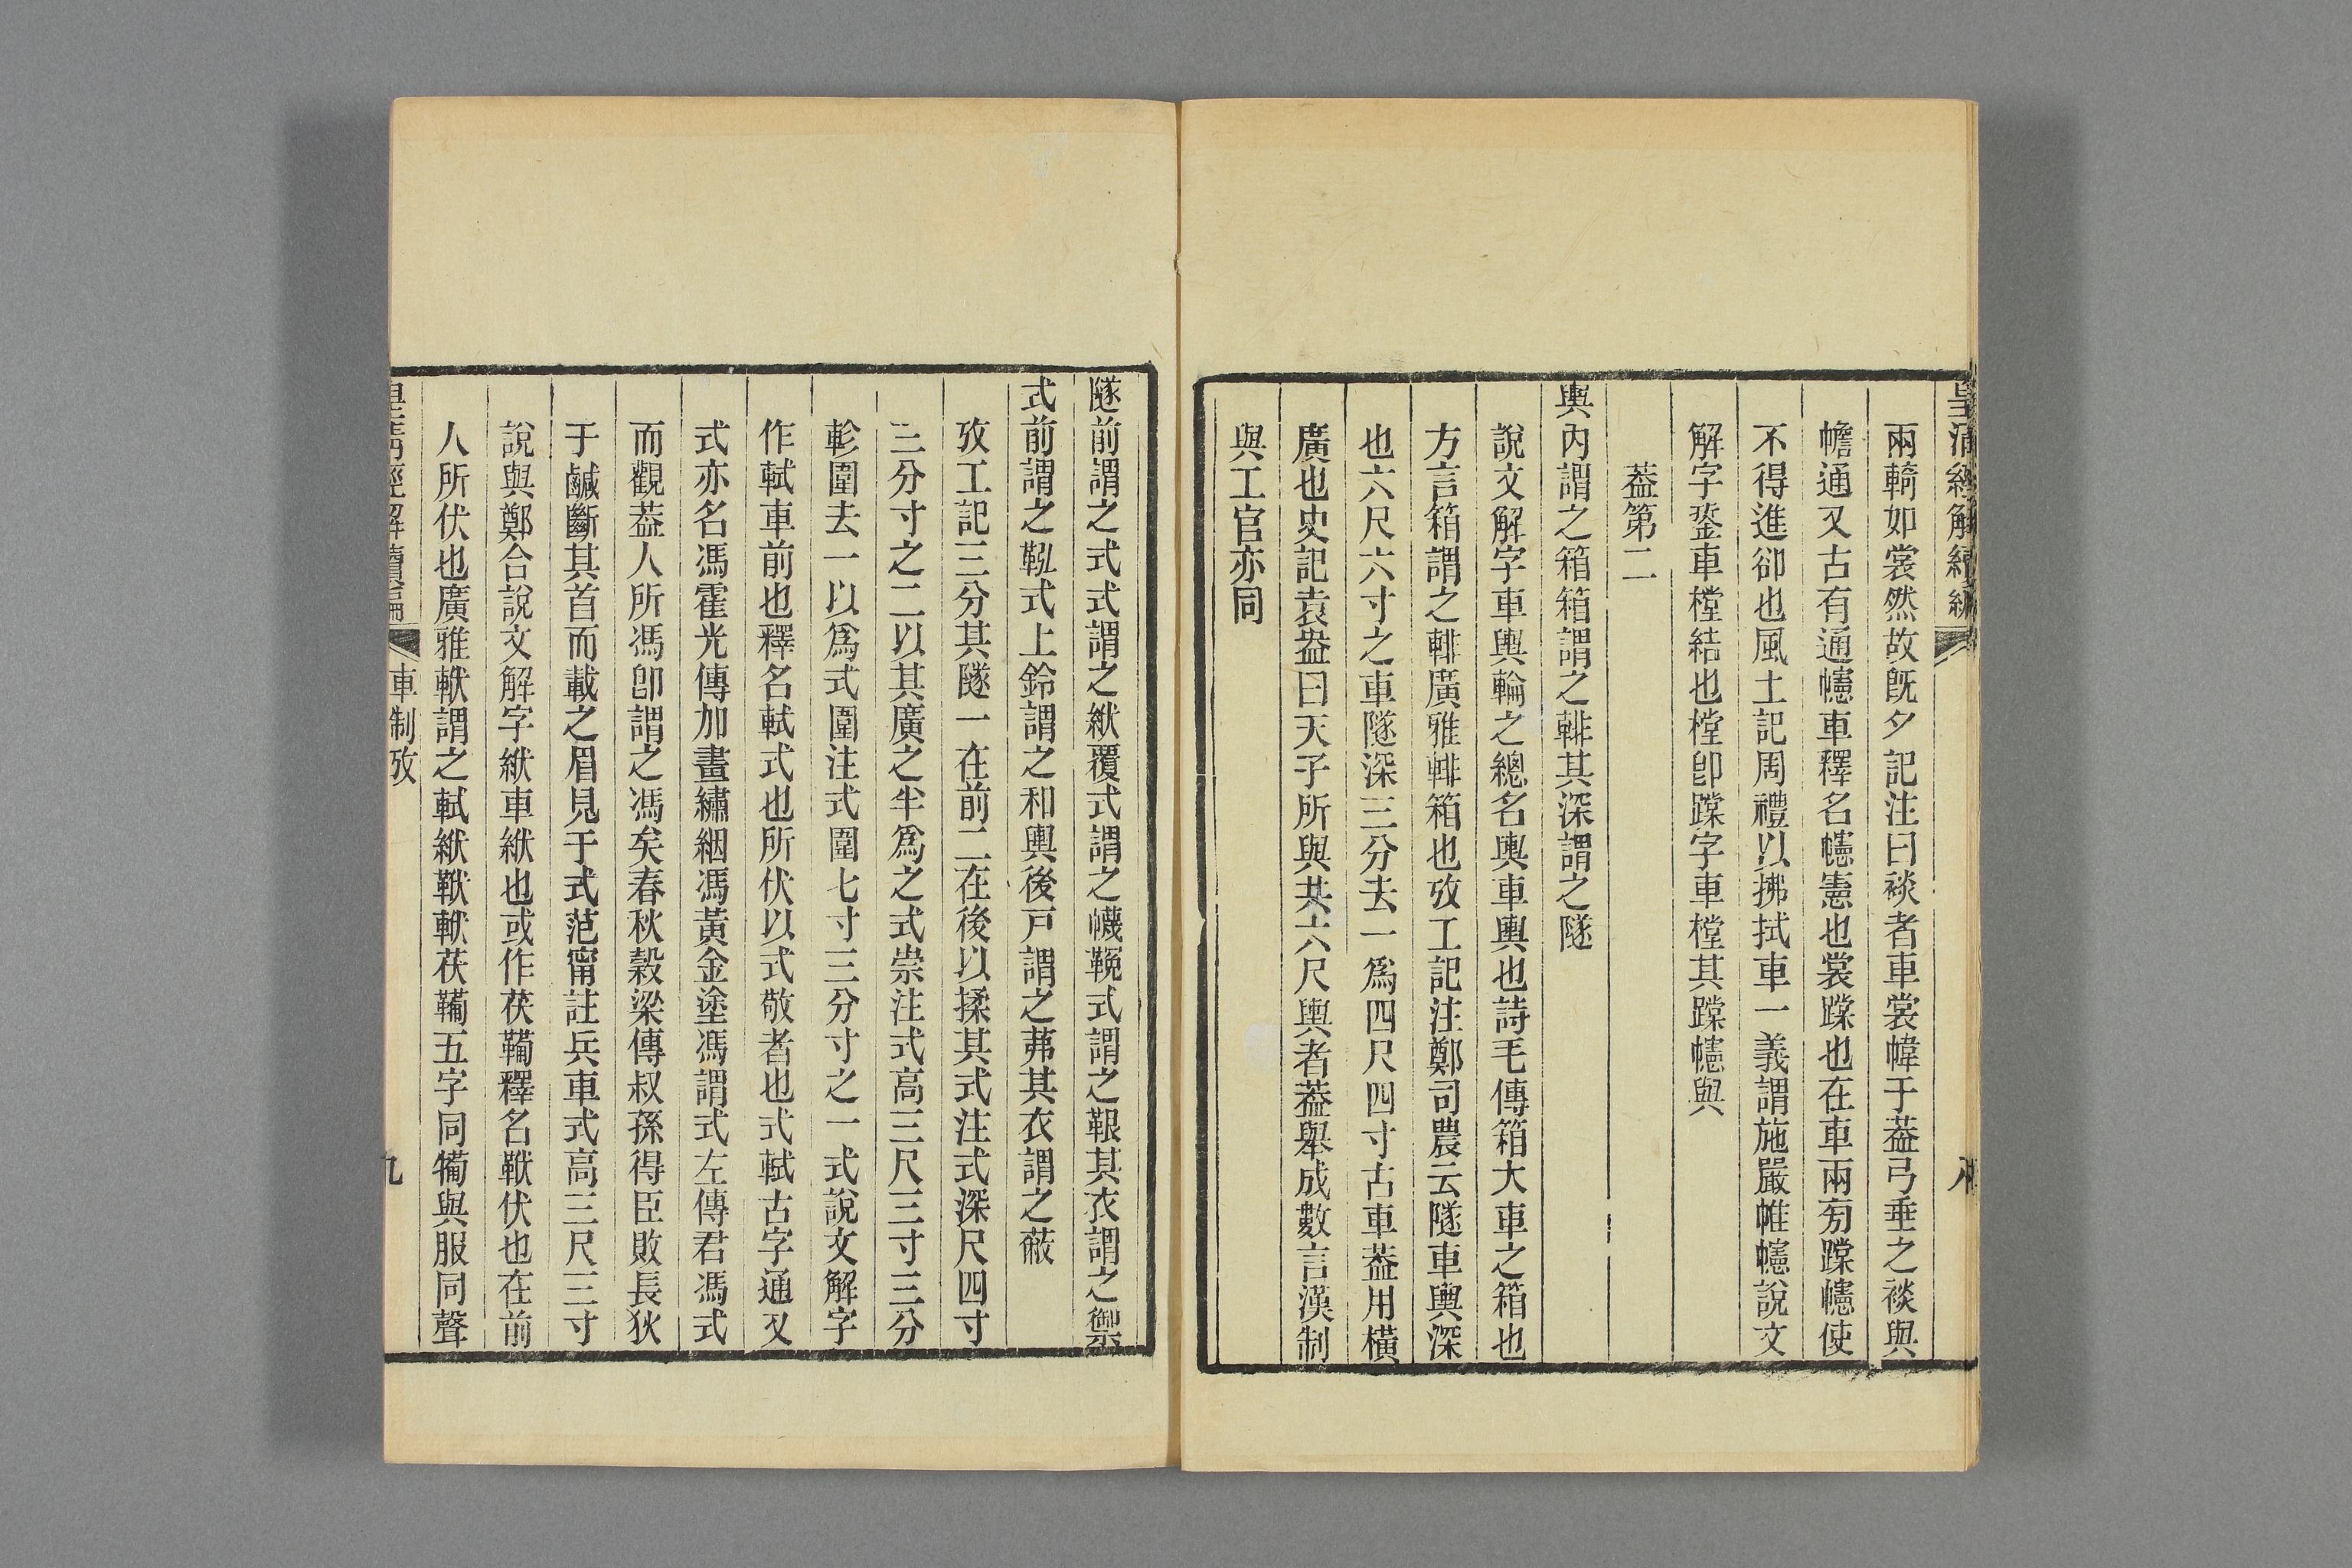 皇清經解續編
八
兩輢如裳然故旣夕記注曰裧者車裳幃于葢弓垂之裧與
幨通又古有通幰車釋名幰憲也裳䠠也在車兩旁䠠幰使
不得進卻也風土記周禮以拂拭車一義謂施嚴帷幰說文
解字䥯車樘結也樘卽䠠字車樘其䠠幰與
葢第二
輿內謂之箱箱謂之䡟其深謂之隧
說文解字車輿輪之總名輿車輿也詩毛傳箱大車之箱也
方言箱謂之䡟廣雅䡟箱也攷工記注鄭司農云隧車輿深
也六尺六寸之車隧深三分去一爲四尺四寸古車葢用橫
廣也史記袁盎曰天子所與共六尺輿者葢舉成數言漢制
與工官亦同
隧前謂之式式謂之紎覆式謂之幭鞔式謂之䩐其衣謂之禦
式前謂之䡓式上鈴謂之和輿後戸謂之茀其衣謂之蔽
攷工記三分其隧一在前二在後以揉其式注式深尺四寸
三分寸之二以其廣之半爲之式崇注式高三尺三寸三分
軫圍去一以爲式圍注式圍七寸三分寸之一式說文解字
作軾車前也釋名軾式也所伏以式敬者也式軾古字通又
式亦名馮霍光傳加畫繡絪馮黃金塗馮謂式左傳君馮式
而觀葢人所馮卽謂之馮矣春秋穀梁傳叔孫得臣敗長狄
于鹹斷其首而載之眉見于式范甯註兵車式高三尺三寸
說與鄭合說文解字紎車紎也或作茯䩻釋名䩎伏也在前
人所伏也廣雅䡋謂之軾紎䩎䡋茯䩻五字同犕與服同聲
皇清經解續編
車制攷
九